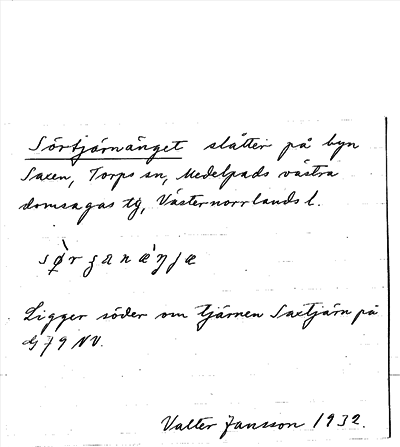 Sörtjärnänget slåtter på byn
Saxen, Torps sn, Medelpads västra
domsagas tg, Västernorrlands l.
Ligger söder om tjärnen Saxtjärn på
79 NV.
Valter Jansson 1932.